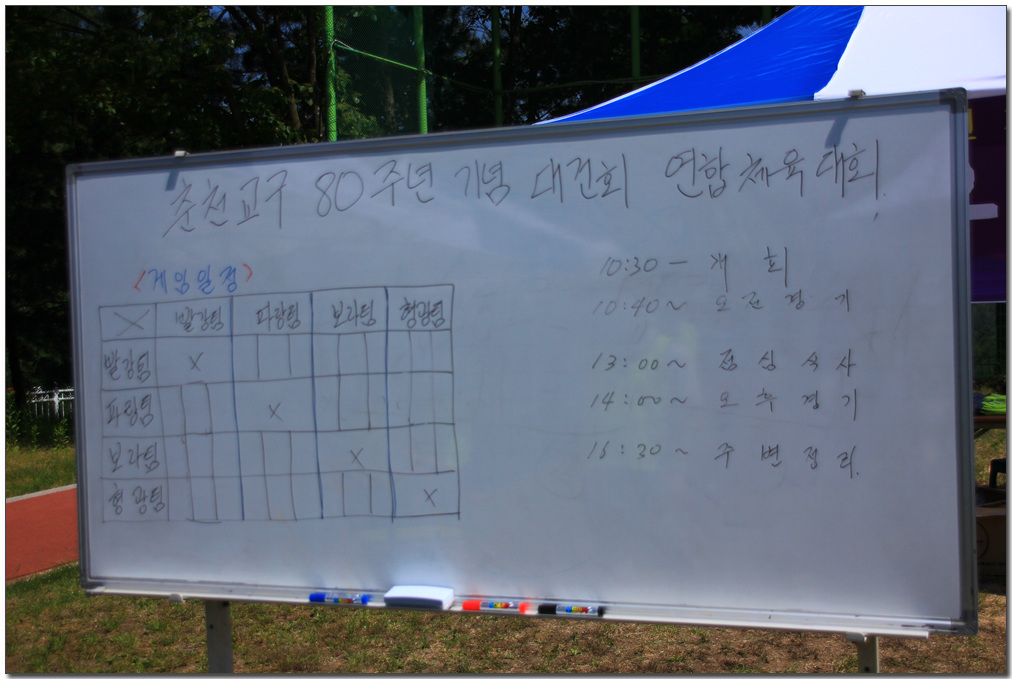 춘천교구 80주년 기념 대건회 연합체육대회
<게임일정>
발강팀 파랑팀 보라팀 형광팀
발강팀 X
파랑팀 X
보라팀 X
형광팀 X
10:30 - 개회
10:40 ~ 오전경기
13:00 ~ 점심식사
14:00 ~ 오후경기
16:30 ~ 주변정리